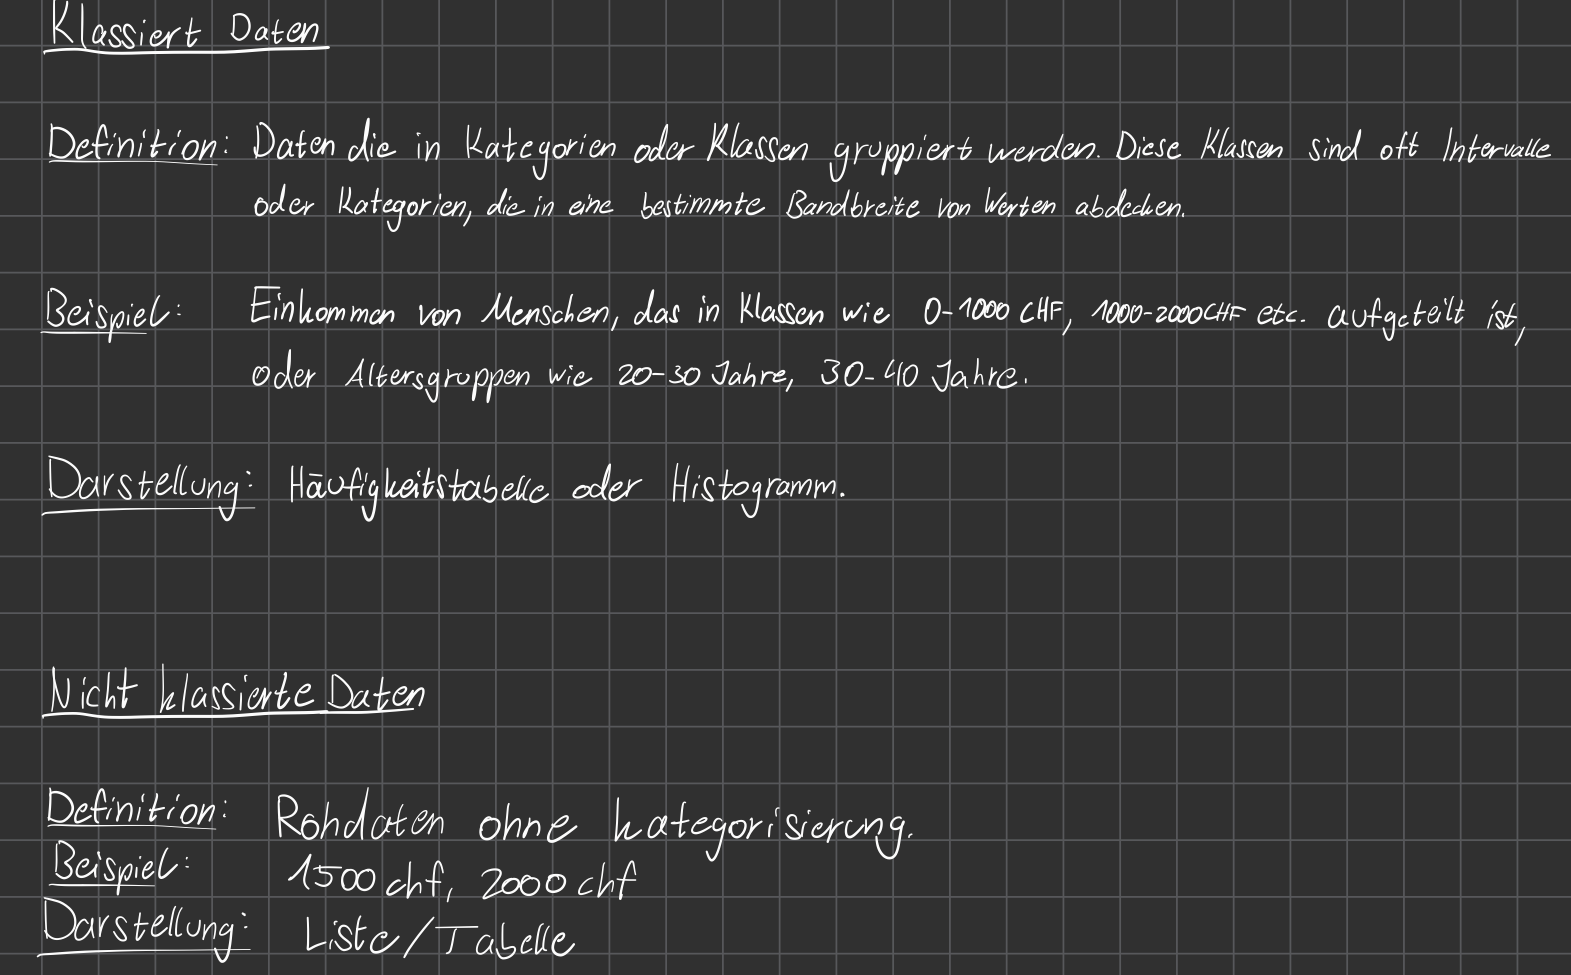 Klassiert Daten
Definition: Daten die in Kategorien oder Klassen gruppiert werden. Diese Klassen sind oft Intervalle
oder Kategorien, die in eine bestimmte Bandbreite von Werten abdecken.
Beispiel: Einkommen von Menschen, das in Klassen wie 0-1000 CHF, 1000-2000CHF etc. aufgeteilt ist,
oder Altersgruppen wie 20-30 Jahre, 30-40 Jahre.
Darstellung: Häufigkeitstabelle oder Histogramm.
Nicht klassierte Daten
Definition: Rohdaten ohne kategorisierung.
Beispiel: 1500 chf, 2000 chf
Darstellung: Liste/Tabelle